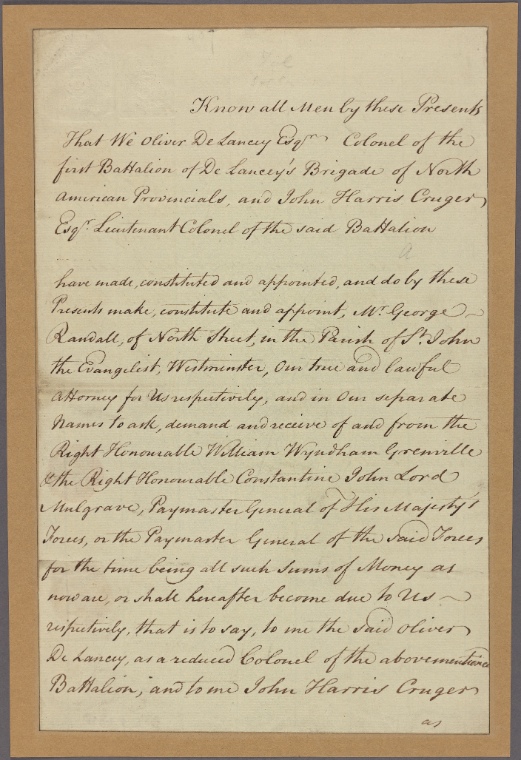 Know all Men by these Presents
That We Oliver De Lancey Esqr. Colonel of the
first Battalion of De Lancey's Brigade of North
American Provincials, and John Harris Cruger
Esqr. Lieutenant Colonel of the said Battalion
have made, constituted and appointed, and do by these
Presents make, constitute and appoint, Mr. George
Randall, of North Street, in the Parish of St. John
the Evangelist, Westminster, Our true and lawful
Attorney for Us respectively, and in Our separate
Names to ask, demand and receive of and from the
Right Honourable William Wyndham Grenville
& the Right Honourable Constantine John Lord
Mulgrave, Paymaster General of His Majesty's
Forces, or the Paymaster General of the said Forces
for the time being all such Sums of Money as
now are, or shall hereafter become due to Us
respectively, that is to say, to me the said Oliver
De Lancey, as a reduced Colonel of the abovementioned
Battalion, and to me John Harris Cruger
as